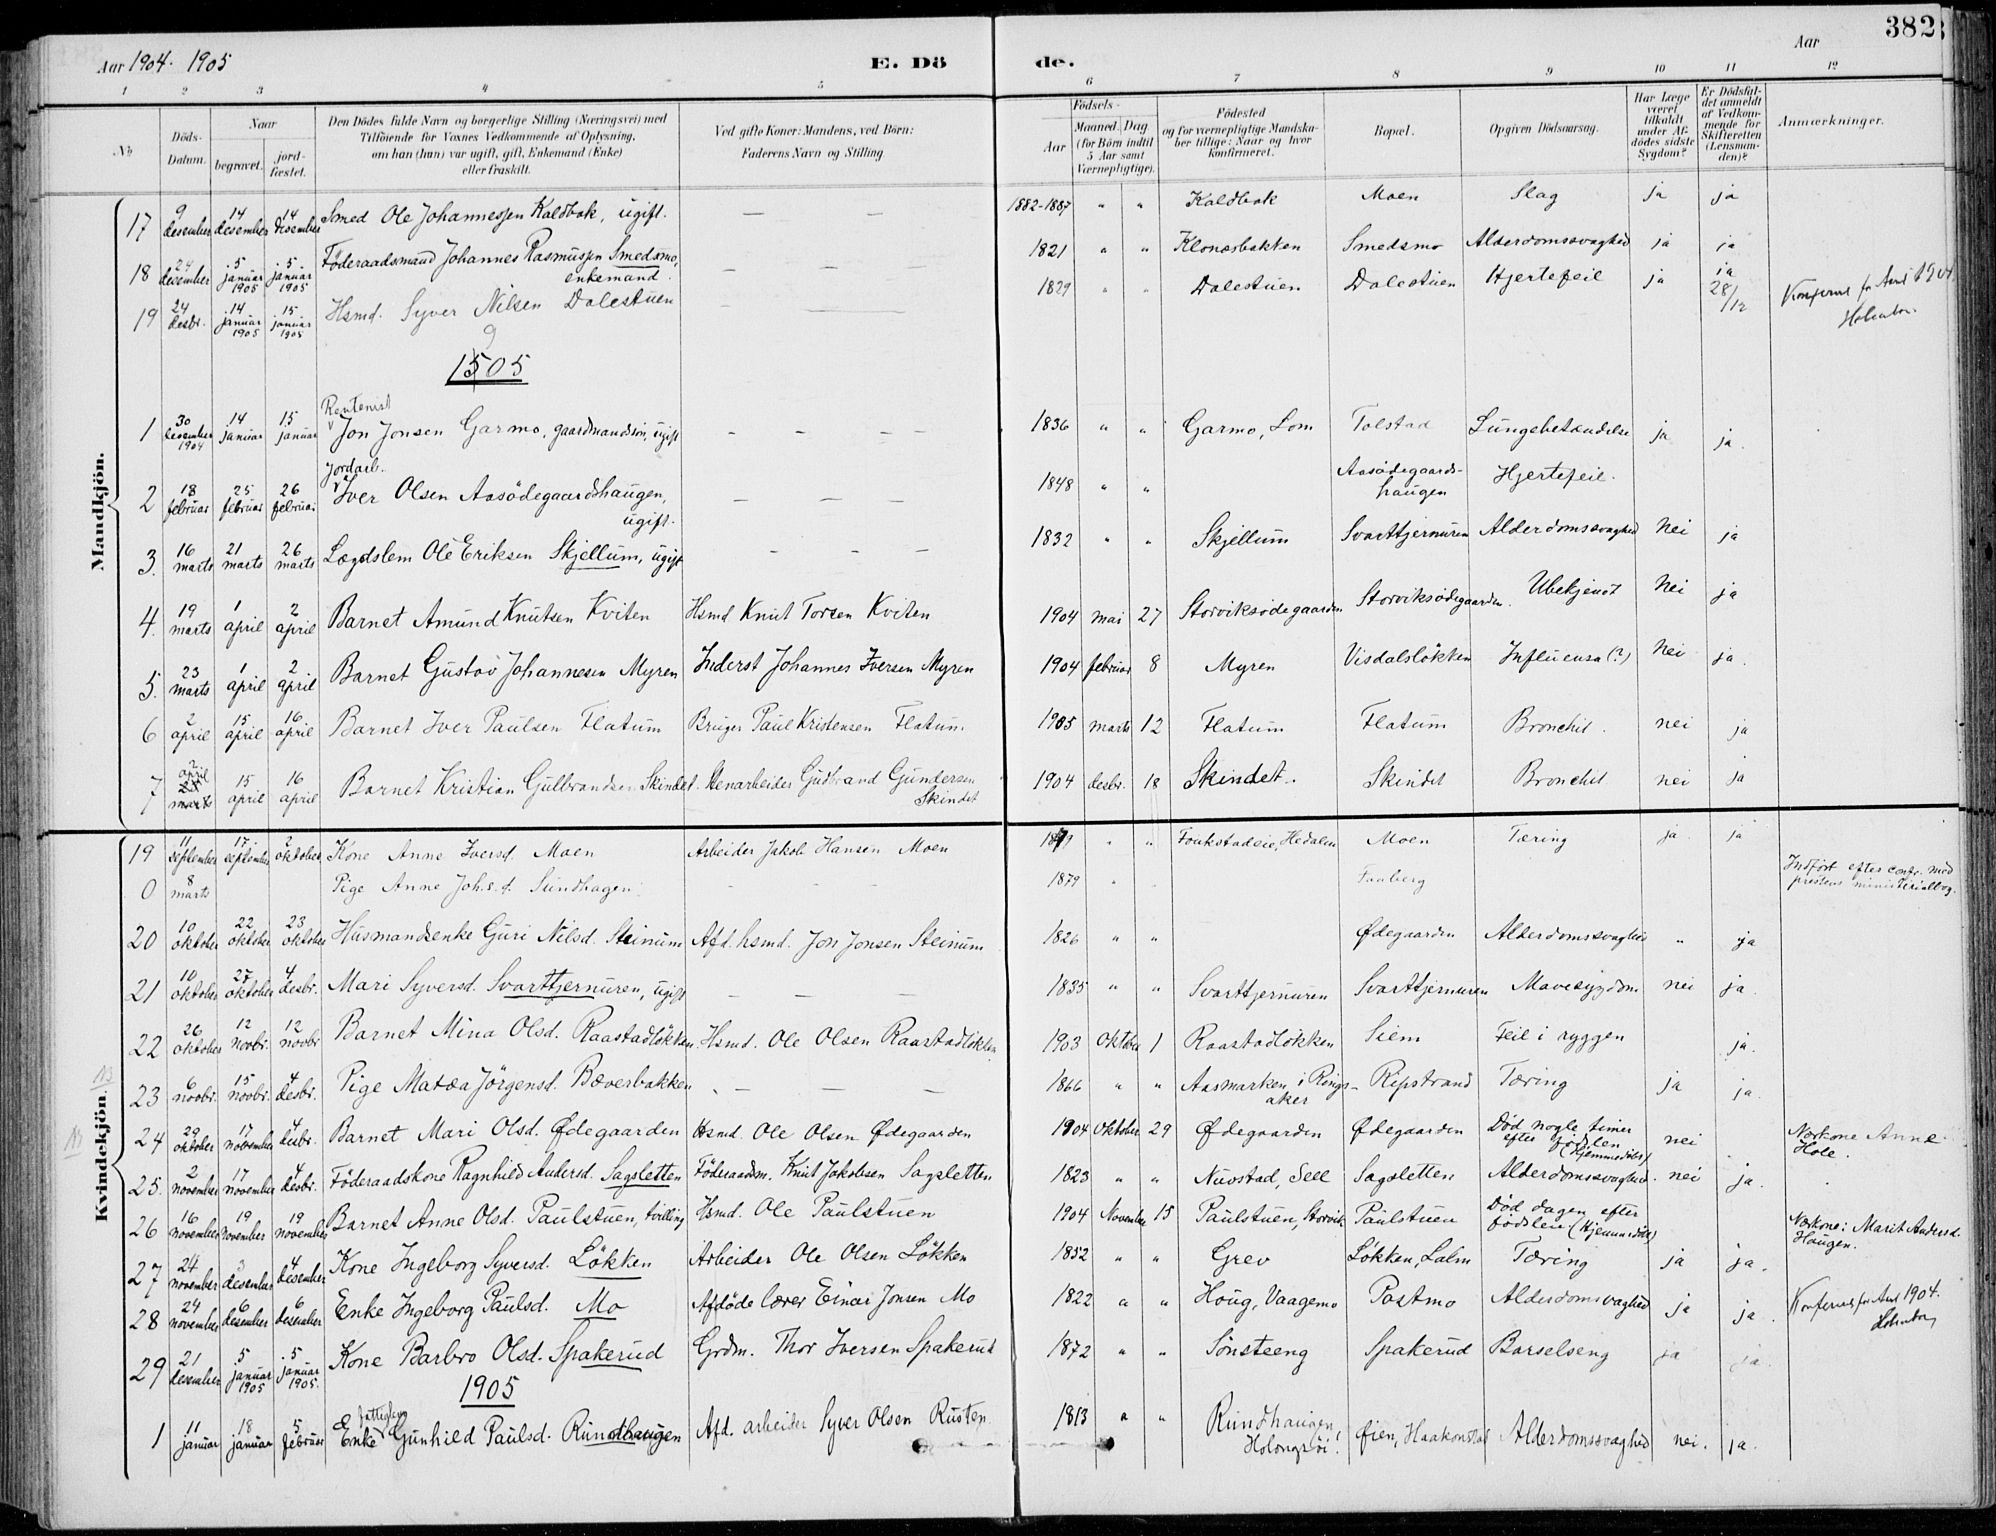 382
Aar 1904. 1905 E. Dö de. Aar
1 2 3 4 5 6 7 8 9 10 11 12
№ Döds-Datum. Naar begravet. jord-fæstet. Den Dödes fulde Navn og borgerlige Stilling (Næringsvei) med Tilföiende for Voxnes Vedkommende af Oplysning, om han (hun) var ugift, gift, Enkemand (Enke) eller fraskilt. Ved gifte Koner: Mandens, ved Börn: Faderens Navn og Stilling. Födsels- Aar Maaned. Dag (for Börn indtil 5 Aar samt Værnepligtige). Födested og for værnepligtige Mandskaber tillige: Naar og hvor konfirmeret. Bopæl. Opgiven Dödsaarsag. Har Læge været tilkaldt under Afdödes sidste Sygdom? Er Dödsfaldet anmeldt af Vedkommende for Skifteretten (Lensmanden)? Anmærkninger.
Mandkjön.
17 9 desember 14 desember 14 desember Smed Ole Johannessen Kaldbak, ugift. — — — 1882-1887 " " Kaldbak Moen Slag ja ja
18 24 desember 5 januar 1905 5 januar 1905 Föderaadsmand Johannes Rasmussen Smedsmo, enkemand. — — — 1821 " " Klonesbakken Smedsmo Alderdomssvaghed ja ja
19 24 desbr. 14 januar 1905 15 januar 1905 Hsmd. Syver Nilsen Dalestuen — — — 1829 " " Dalestuen Dalestuen Hjertefeil ja ja 28/12 Konfereret for Aaret 1904
1905
1 30 desember 1904 14 januar 15 januar Rentenist Jon Jonsen Garmo, gaardmandssön, ugift — — — 1836 " " Garmo, Lom Tolstad Lungebetændelse ja ja.
2 18 februar 25 februar 26 februar Jordarb. Iver Olsen Aasödegaardshaugen, ugift. — — — 1848 " " Aasödegaards-haugen Hjertefeil.
3. 16 marts 21 marts 26 marts Lægdslem Ole Eriksen Skjellum, ugift — — — 1832 " " Skjellum Svarttjernuren Alderdomssvaghed Nei ja
4. 19 marts 1 april 2 april Barnet Amund Knutsen Kviten Hsmd Knut Torsen Kviten 1904 mai 27 Storviksödegaarden Storviksödegaarden. Ubekjendt Nei ja
5. 23 marts 1 april 2 april Barnet Gustav Johannesen Myren Inderst Johannes Iversen Myren 1904 februar 8 Myren Visdalslökken Influensa (?) Nei ja.
6 2 april 15 april 16 april Barnet Iver Paulsen Flatum Bruger Paul Kristensen Flatum. 1905 marts 12 Flatum Flatum Bronchit. nei ja
7 2 april marts 15 april 16 april Barnet Kristian Gulbrandsen Skindet. Stenarbeider Gudbrand Gundersen Skindet 1904 desbr. 18 Skindet. Skindet Bronchit nei ja
Kvindekjön.
19 11 september 17 september 2 oktober Kone Anne Iversd. Moen Arbeider Jakob Hansen Moen " " Foukstadeie, Hedalen Moen Tæring ja ja
0 8 marts Pige Anne Johs.d. Sundhagen. - - - 1879 " " Faaberg Indført efter confr. med prestens ministerialbog.
20 10 oktober 22 oktober 23 oktober Husmandsenke Guri Nilsd. Steinum Afd. hsmd. Jon Jonsen Steinum 1826 " " Ødegaarden Alderdomssvaghed " ja
21 10 oktober 27 oktober 4 desbr. Mari Syversd. Svarttjernuren, ugift — — — 1835 " " Svarttjernuren Svarttjernuren Mavesygdom nei ja.
22 26 oktober 12 novbr. 12 novbr Barnet Mina Olsd. Raastadlökken. Hsmd. Ole Olsen Raastadlökken 1903 Oktober 1 Raastadlökken Siem Feil i ryggen ja.
23 6 novbr. 15 novbr. 4 desbr. Pige Matea Jörgensd. Bæverbakken — — — 1866 " " Aasmarken i Ringsaker Ripstrand Tæring ja ja.
24 29 oktober 17 november 4 desbr. Barnet Mari Olsd. Ødegaarden Hsmd. Ole Olsen Ødegaarden 1904 Oktober 29 Ødegaarden Ødegaarden Död nogle timer efter födslen (Hjemmedöbt) nei Nørkone Anne Hole.
25. 2 november 17 november 4 desbr. Föderaadskone Ragnhild Andersd. Sagsletten Föderaadsm. Knut Jakobsen Sagsletten 1823 " " Nustad, Sell Sagsletten Alderdomssvaghed. nei ja.
26 16 november 19 november 19 november Barnet Anne Olsd. Paulstuen, tvilling Hsmd. Ole Paulstuen 1904 November 15 Paulstuen, Storvik Paulstuen Död dagen efter födslen (Hjemmedöbt) Nørkone: Marit Andersd. Haugen.
27 24 november 3 desember 4 desember Kone Ingeborg Syversd. Lökken Arbeider Ole Olsen Lökken 1852 " " Grev Lökken, Lalm Tæring ja ja.
28 24 november 6 desember 6 desember Enke Ingeborg Paulsd. Mo Afdöde lærer Einar Jonsen Mo 1822 " " Houg, Vaagemo Postmo Alderdomsvaghed ja ja. Konfereret for Aaret 1904.
29 21 desember 5 januar 1905 5 januar 1905. Kone Barbro Olsd. Spakerud Grdm. Thor Iversen Spakerud 1872 " " Sönsteeng Spakerud Barselseng ja ja.
1905
1 11 januar 18 januar 5 februar fattiglem Enke Gunhild Paulsd. Rundhaugen Afd. arbeider Syver Olsen Rusten. 1813 " " Rundhaugen, Øien, Haakonstad Alderdomssvaghed nei. ja.